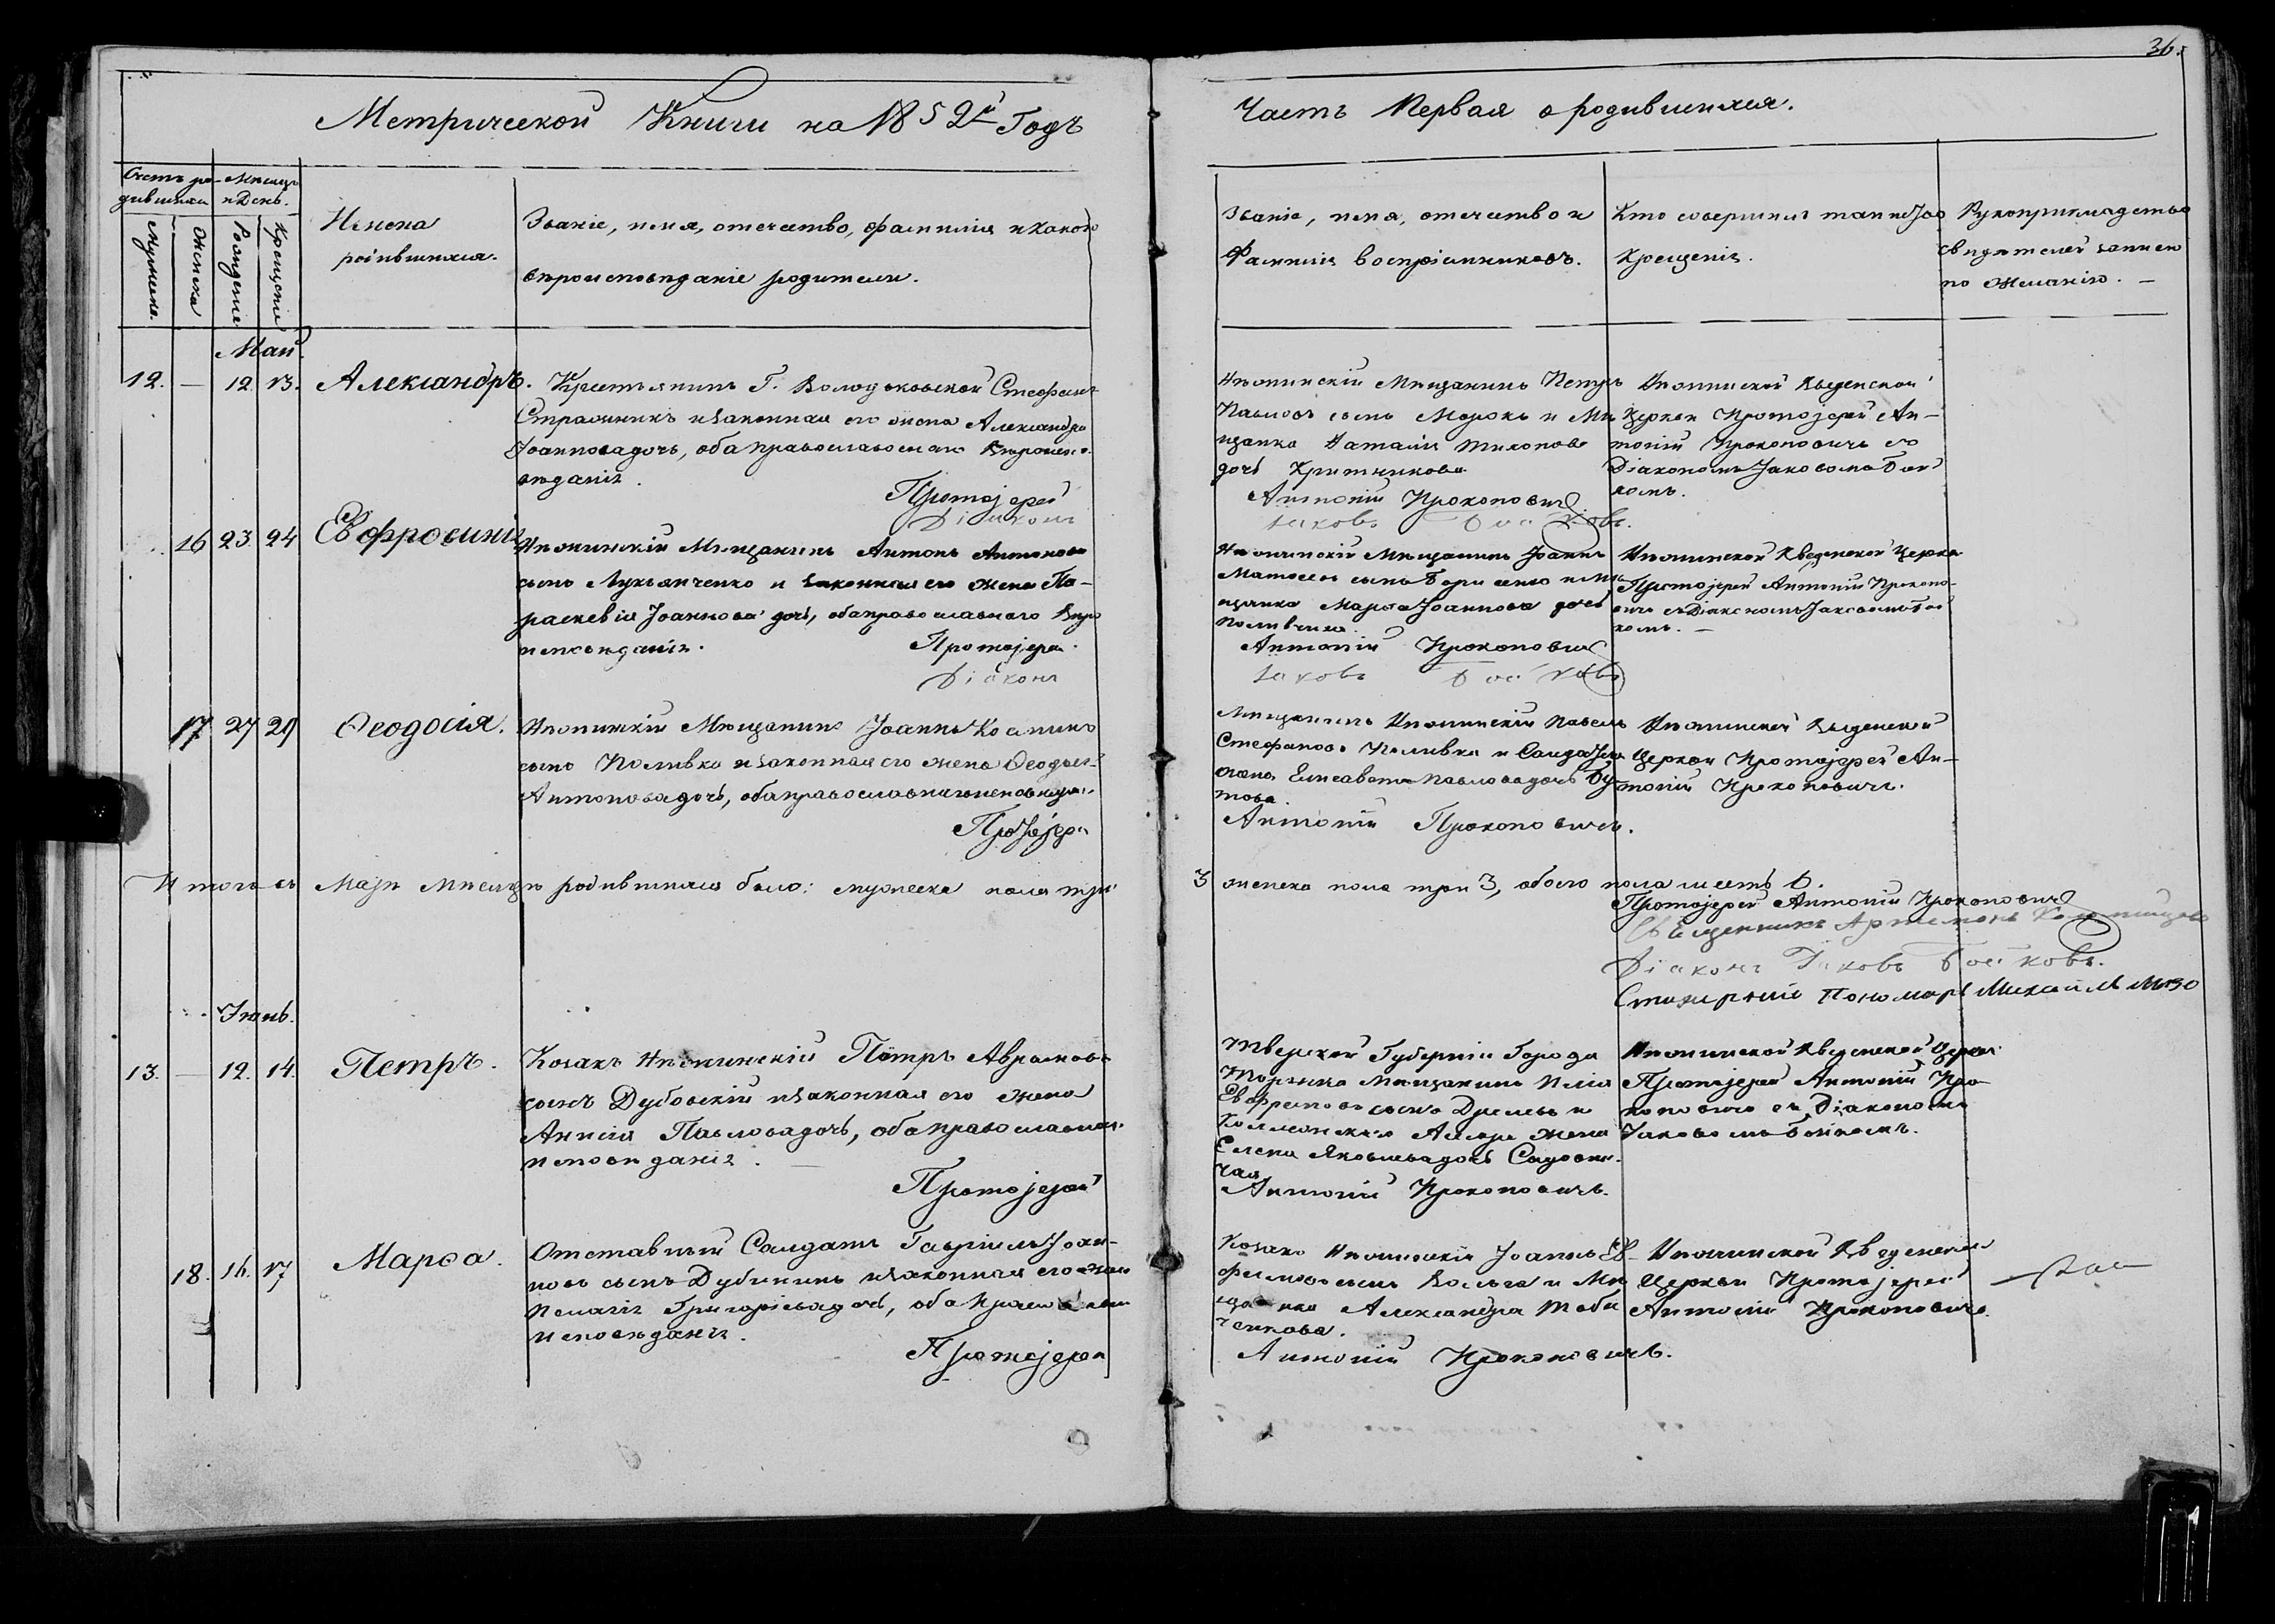 36.
Метрической Книги на 1852й Годъ
Часть Первая о родившихся.
Счетъ ро-
дившихся
Мужеска.
Женска
Месяцъ
и День.
Рожденіе
Крещеніе
Имена
родившихся.
Званіе, имя, отечество, фамилія и какого
вѣроисповѣданіе родители.
Званіе, имя, отечество и
Фамилія воспріемниковъ.
Кто совершилъ таинство
Крещенія.
Рукоприкладство
свидѣтелей записи
по желанію. —
Май.
12. — 12. 13. Александръ.
Крестьянинъ Г. Володьковской Стефанъ
Стражникъ и законная его жена Александра
Іоаннова дочь, оба православнаго вѣроиспо-
вѣданія.
Протоіерей
Діаконъ
Нѣжинскій Мѣщанинъ Петръ
Павловъ сынъ Морокъ и Мѣ
щанка Наталія Тихонова
дочь
Антоній Прокоповичъ
Іаковъ Бойковъ.
Нѣжинской Введенской
Церкви Протоіерей Ан-
тоній Прокоповичъ со
Діакономъ Іаковомъ Бой
комъ.
16 23. 24 Евфросинія
Нѣжинскій Мѣщанинъ Антонъ Антоновъ
сынъ Лукьянченко и законная его жена Па-
раскевія Іоаннова дочь, оба православнаго вѣро
исповѣданія.
Протоіерей.
Діаконъ
Нѣжинскій Мѣщанинъ Іоаннъ
Матвеевъ сынъ Борисенко и Мѣ
щанка Марѳа Іоаннова дочь
Антоній Прокоповичъ
Іаковъ Бойковъ
Нѣжинской Введенской Церкви
Протоіерей Антоній Прокопо-
вичъ съ Діакономъ Іаковомъ Бой
комъ. —
17 27 29 Ѳеодосія.
Нѣжинскій Мѣщанинъ Іоаннъ Косминъ
сынъ Поливка и законная его жена Ѳеодосія
Антонова дочь, оба православнаго исповѣданія
Протоіерей
Мѣщанинъ Нѣжинскій Павелъ
Стефановъ Поливка и Солдатска
жена Елисавета Павлова дочь Бу-
това.
Антоній Прокоповичъ.
Нѣжинской Введенской
Церкви Протоіерей Ан-
тоній Прокоповичъ.
Итого въ Маѣ Мѣсяцѣ родившихся было: мужеска пола три
3 женска пола три 3, обоего пола шесть 6.
Протоіерей Антоній Прокоповичъ
Священникъ Артемонъ
Діаконъ Іаковъ Бойковъ.
Стихарный Пономарь Михаилъ
Іюнь.
13. — 12. 14. Петръ.
Козакъ Нѣжинскій Пётръ Аврамовъ
сынъ Дубовскій и законная его жена
Анисія Павлова дочь, оба православнаго
исповѣданія. —
Протоіерей
Тверской Губерніи Города
Торжка Мѣщанинъ Илія
Евфремовъ сынъ
жена
Елена Яковлева дочь
Антоній Прокоповичъ.
Нѣжинской Введенской Церкви
Протоіерей Антоній Про-
коповичъ съ Діакономъ
Іаковомъ Бойкомъ.
18. 16. 17 Марѳа.
Отставный Солдатъ Гавріилъ Іоан-
новъ сынъ Дубининъ и законная его жена
Пелагія Григоріева дочь, оба православнаго
исповѣданія.
Протоіерей
Козакъ Нѣжинскій Іоаннъ Ев-
фимовъ сынъ и Мѣ
щанка Александра
Антоній Прокоповичъ.
Нѣжинской Введенской
Церкви Протоіерей
Антоній Прокоповичъ.